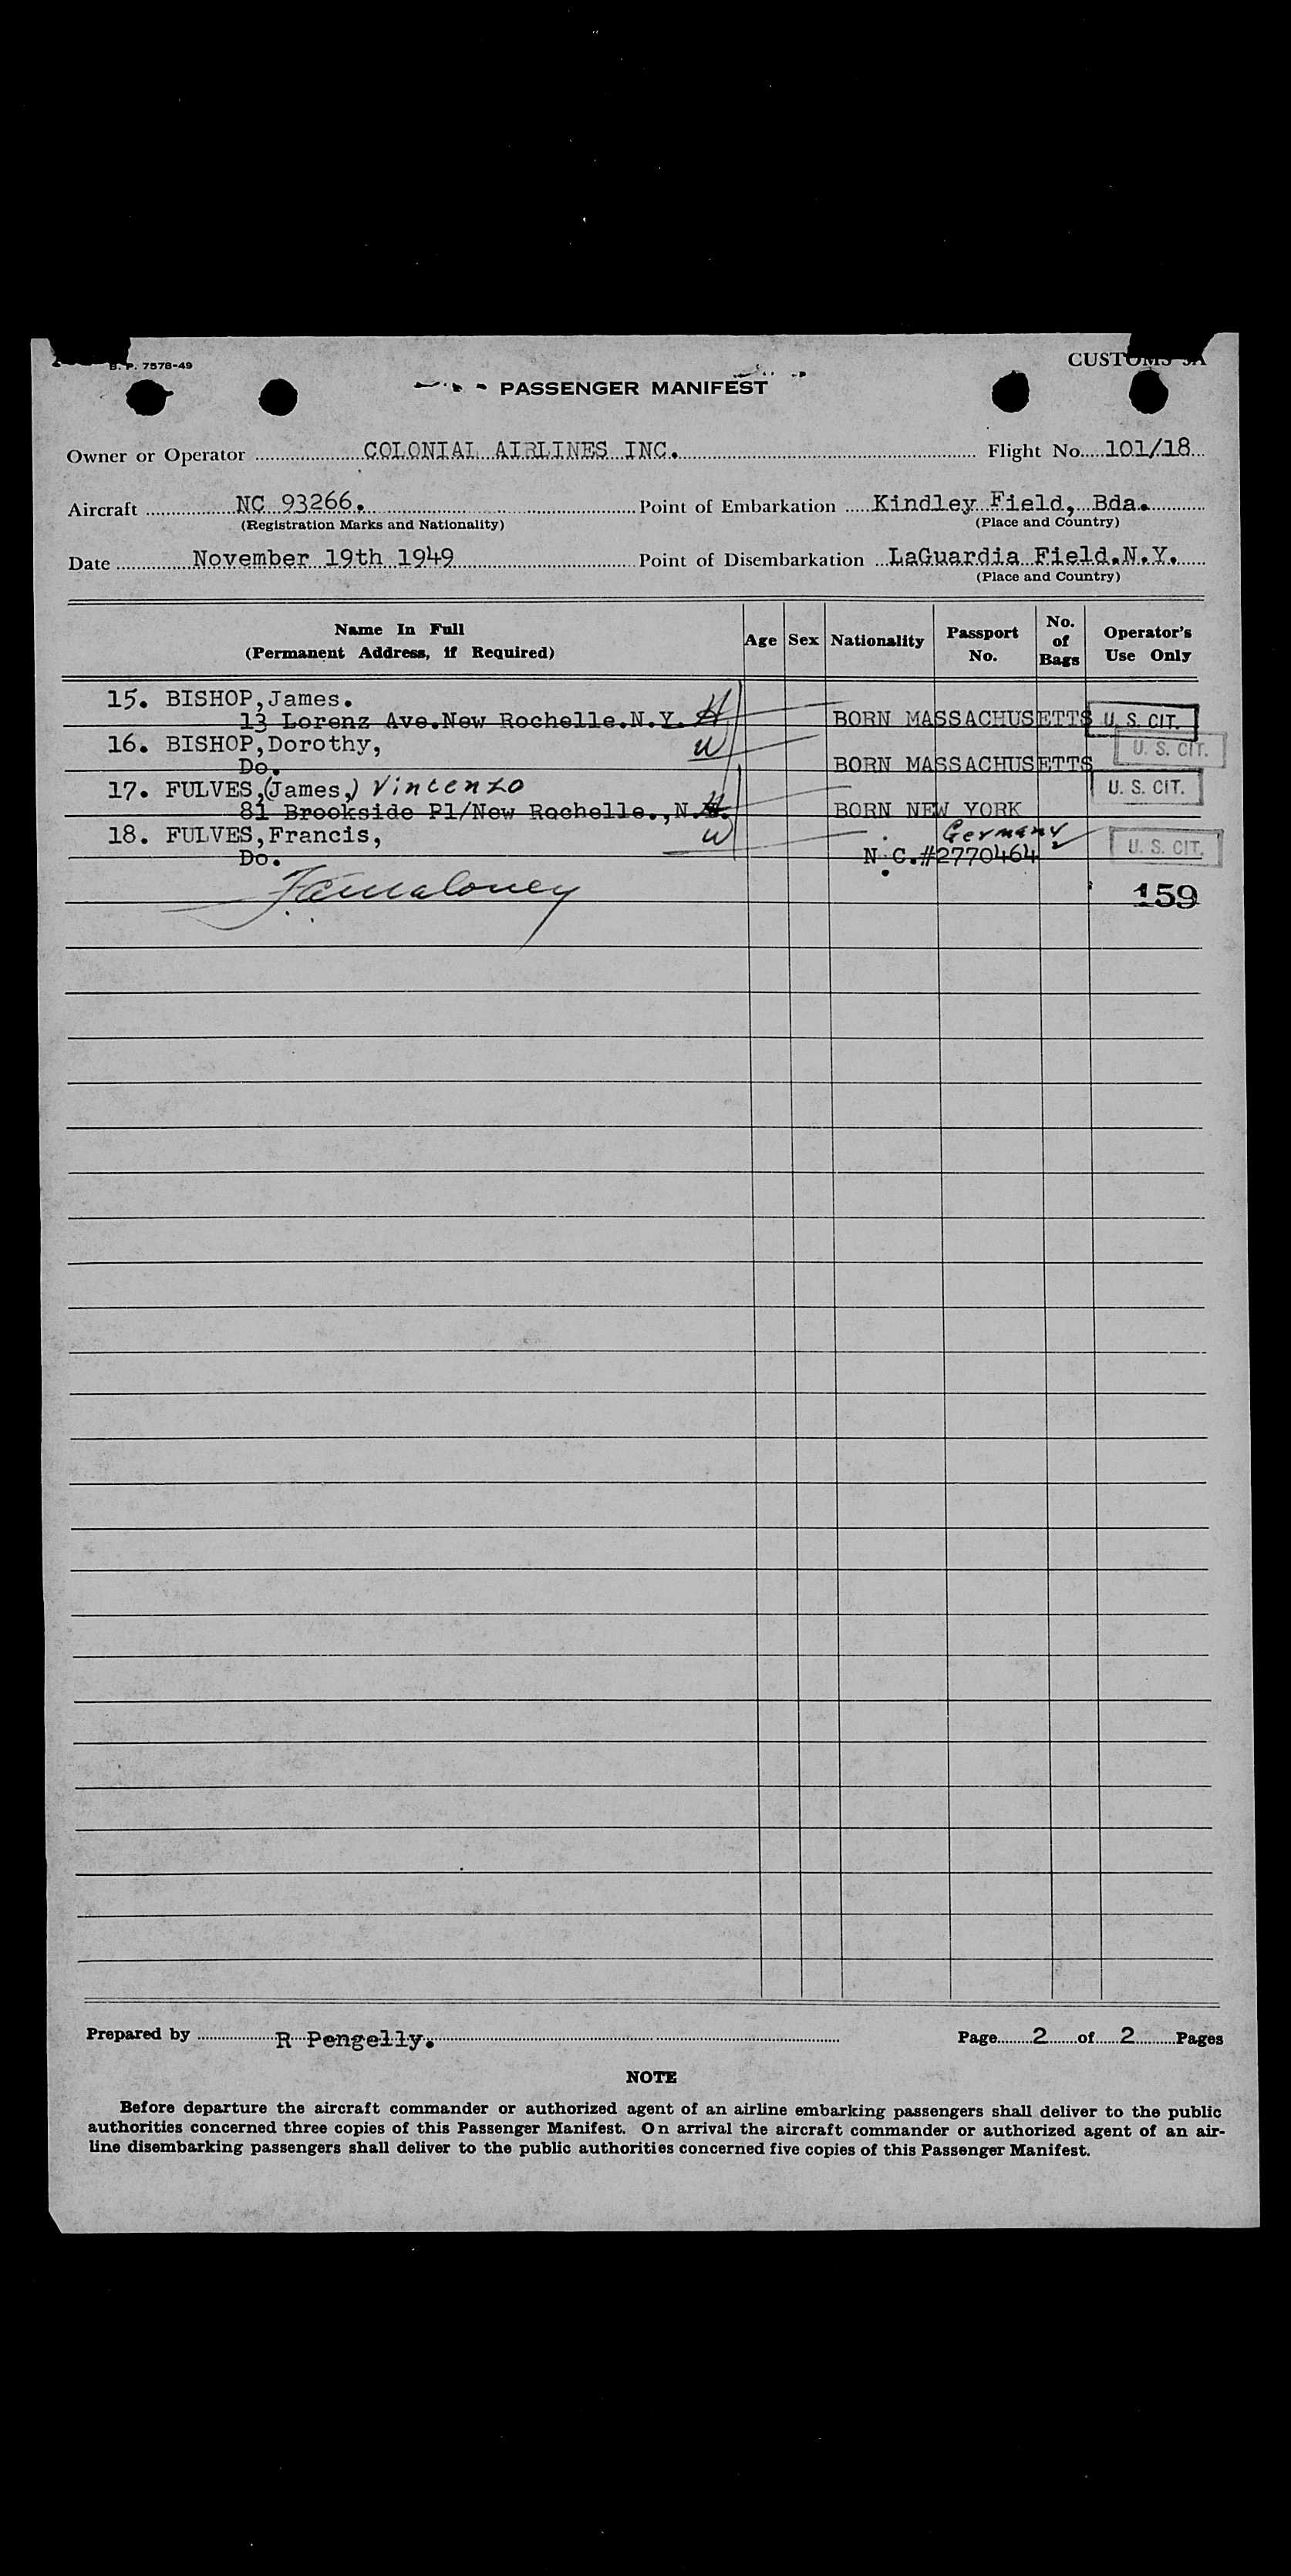 B. P. 7578-49
CUSTOMS 3A
PASSENGER MANIFEST
Owner or Operator COLONIAL AIRLINES INC. Flight No. 101/18
Aircraft NC 93266. Point of Embarkation Kindley Field, Bda.
(Registration Marks and Nationality) (Place and Country)
Date November 19th 1949 Point of Disembarkation LaGuardia Field.N.Y.
(Place and Country)
Name In Full
(Permanent Address, if Required)
Age Sex Nationality
Passport
No.
No.
of
Bags
Operator's
Use Only
15. BISHOP,James.
13 Lorenz Ave.New Rochelle.N.Y. H BORN MASSACHUSETTS U. S. CIT.
16. BISHOP,Dorothy, W U. S. CIT.
Do. BORN MASSACHUSETTS
17. FULVES,(James,) Vincenzo U. S. CIT.
81 Brookside Pl/New Rochelle.,N. H BORN NEW YORK
18. FULVES,Francis, W Germany
Do. N.C.#2770464 U. S. CIT.
159
Prepared by R Pengelly. Page 2 of 2 Pages
NOTE
Before departure the aircraft commander or authorized agent of an airline embarking passengers shall deliver to the public
authorities concerned three copies of this Passenger Manifest. On arrival the aircraft commander or authorized agent of an air-
line disembarking passengers shall deliver to the public authorities concerned five copies of this Passenger Manifest.